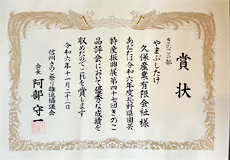 賞状
きのこ部
やまぶしたけ
久保産業有限会社様
あなたは令和六年度長野県園芸
特産振興展第四十七回きのこ
品評会において優秀な成績を
収めたのでこれを賞します
令和六年十一月二十二日
信州きのこ振り推進協議会
会長 阿部守一